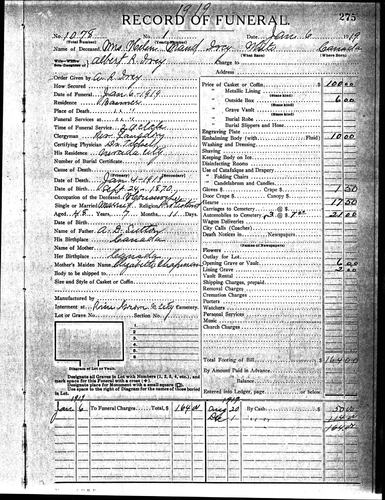 1919
RECORD OF FUNERAL.
275
No. 1078 No. 1 Date Jan 6 1919
(Total Number) (Yearly Number)
Name of Deceased Mrs. Maud Ivey White Canada
(What Race) (Where Born)
Wife-Widow Son-Daughter of Albert R. Ivey
Charge to
Address
Order Given by A. R. Ivey
How Secured
Date of Funeral Jan 6 1919
Residence
Place of Death
Funeral Services at
Time of Funeral Service 2 oclock
Clergyman Rev.
Certifying Physician Dr.
His Residence Nevada City
Number of Burial Certificate
Cause of Death
(Primary) (Secondary)
Date of Death Jan 4 - 1919
Date of Birth Sept 24 - 1870
Occupation of the Deceased Housewife
Single or Married Married Religion
Aged 48 Years 7 Months 11 Days
Name of Father A. D.
His Birthplace Canada
Name of Mother
Her Birthplace Canada
Mother's Maiden Name Elizabeth Chapman
Body to be shipped to
Size and Style of Casket or Coffin
Manufactured by
Interment at Pine Grove N. City Cemetery.
Lot or Grave No. Section No.
Diagram of Lot or Vault
Designate all Graves in Lot with Numbers (1, 2, 3, 4, etc.), and
mark space for this Funeral with a cross (+).
Designate place of Monument with a small square
Use space to right of Diagram for the names of those buried
in Lot.
Price of Casket or Coffin $ 100 00
" Metallic Lining
" Outside Box 6 00
" Grave Vault
" Burial Robe
" Burial Slippers and Hose
Engraving Plate
Embalming Body (with Fluid) 10 00
Washing and Dressing
Shaving
Keeping Body on Ice
Disinfecting Rooms
Use of Catafalque and Drapery
" Folding Chairs
" Candelabrum and Candles
Gloves $ Crape $ 1 50
Door Crape $ Canopy $
Hearse 17 50
Carriages to Cemetery @ $
Automobiles to Cemetery 3 @ $ 7 00 21 00
Wagon Deliveries @ $
City Calls (Coaches) @ $
Death Notices in Newspapers
(Names of Newspapers)
Flowers
Outlay for Lot
Opening Grave or Vault 6 00
Lining Grave 2 00
Vault Rental
Shipping Charges, prepaid
Removal Charges
Cremation Charges
Porters
Watchers
Personal Services
Music
Church Charges
Total Footing of Bill $ 164 00
By Amount Paid in Advance
Balance
Entered into Ledger, page or below.
1919 1919
Jan 6 To Funeral Charges Total, $ 164 00
Aug 20 By Cash $ 50 00
Dec 1 " " 114 00
164 00